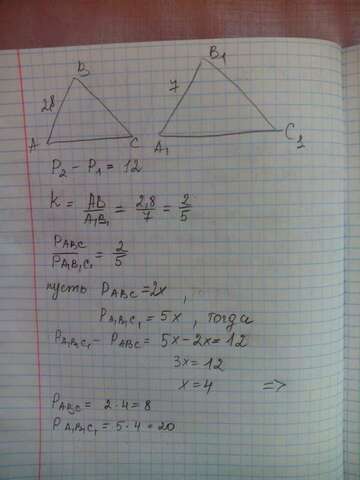 B
B₁
28
7
A
C
A₁
C₁
P₂ - P₁ = 12
K = AB/A₁B₁ = 2,8/7 = 2/5
P_ABC/P_A₁B₁C₁ = 2/5
пусть P_ABC = 2x,
P_A₁B₁C₁ = 5x, тогда
P_A₁B₁C₁ - P_ABC = 5x - 2x = 12
3x = 12
x = 4 =>
P_ABC = 2·4 = 8
P_A₁B₁C₁ = 5·4 = 20